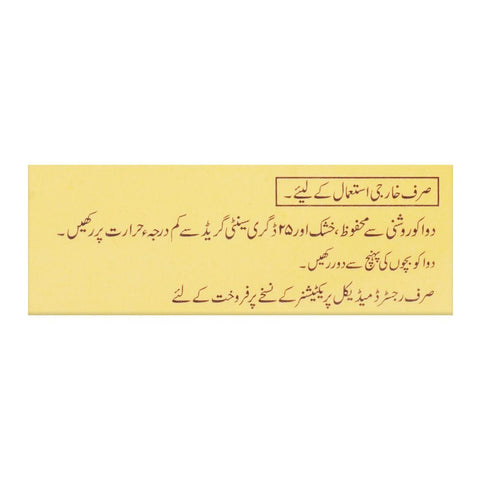 صرف خارجی استعمال کے لیئے ۔
دوا کو روشنی سے محفوظ ، خشک اور ۲۵ ڈگری سینٹی گریڈ سے کم درجہء حرارت پر رکھیں ۔
دوا کو بچوں کی پہنچ سے دور رکھیں ۔
صرف رجسٹرڈ میڈیکل پریکٹیشنر کے نسخے پر فروخت کے لئے